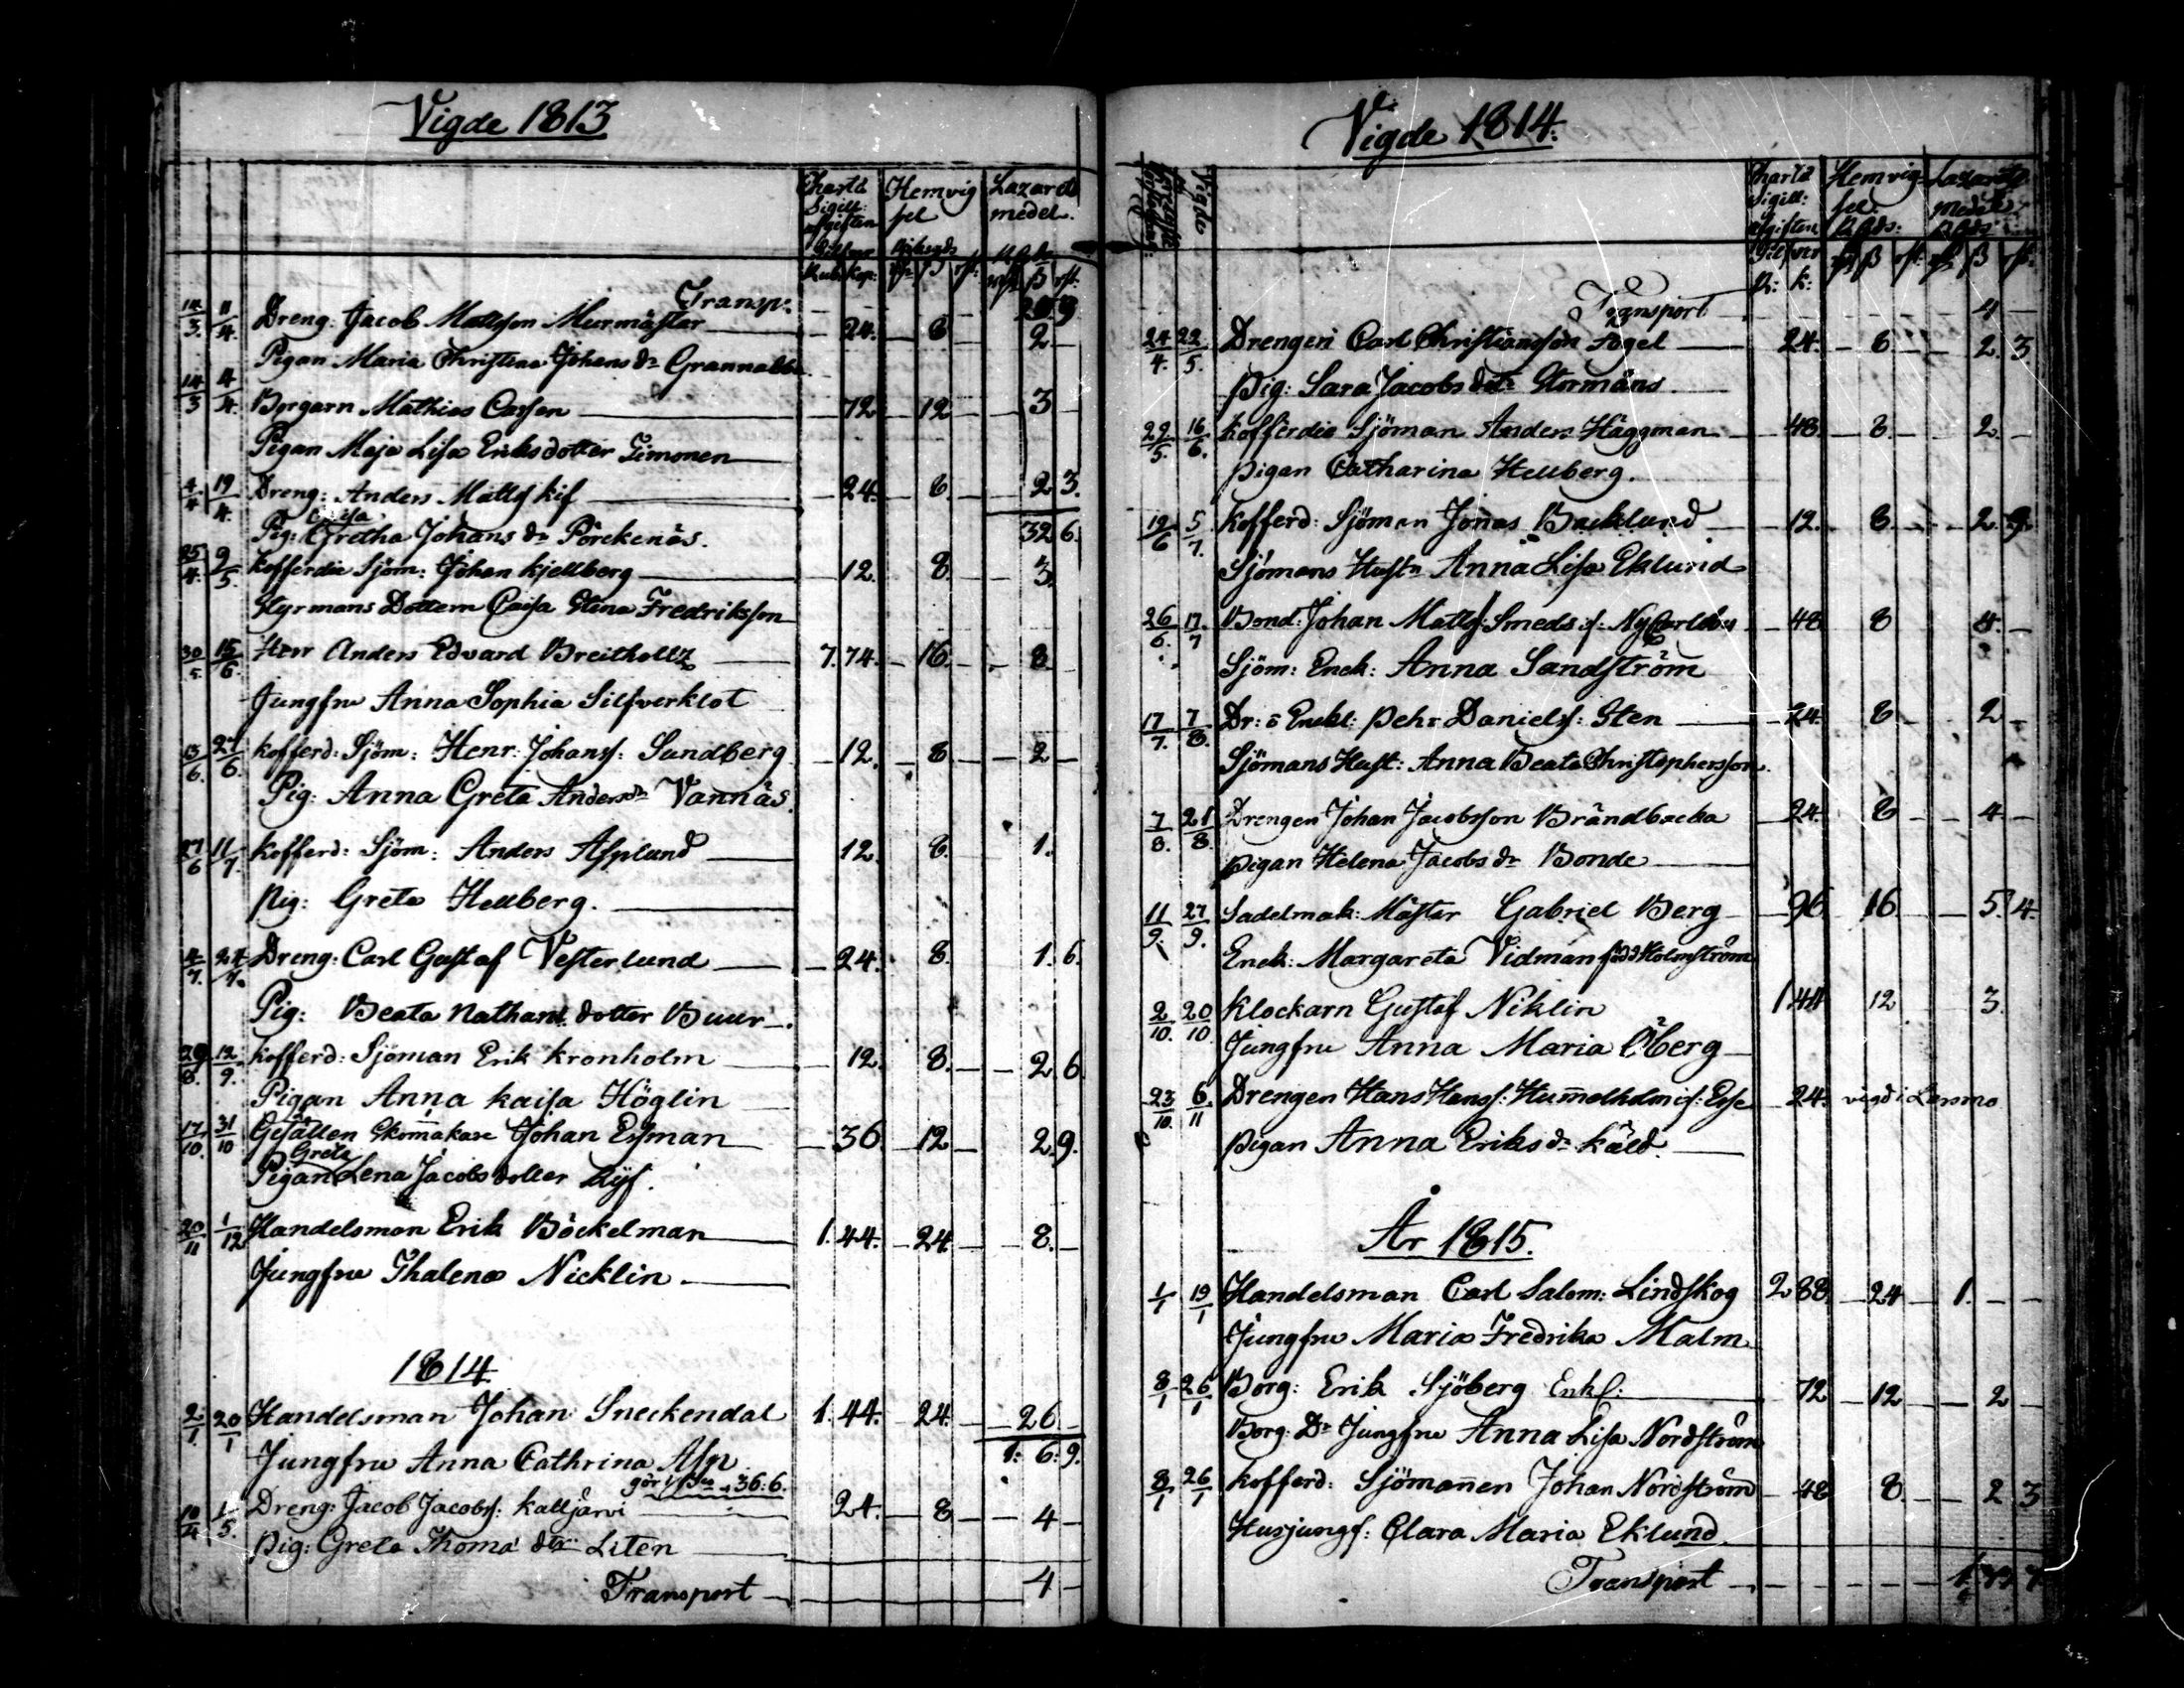 Vigde 1813
Charta Sigill: afgiften Silfver Rub. Kop:
Hemvig sel
Lazaretts medel.
Transp: 20 9
14/3. 11/4. Dreng: Jacob Mattsson Murmästar 24. 8 2.
Pigan Maria Christina Johans dr
14/3 4/4. Borgarn Mathias 72 12 3
Pigan Maja Lisa Eriksdotter Timonen
4/4 19/4. Dreng: Anders Matts: Kif 24. 8 2 3.
Caisa
Pig: Gretha Johans dr Pörckenäs. 32 6.
25/4. 9/5. Kofferdie Sjöm: Johan Kjellberg 12. 8 3.
Styrmans Dottern Caisa Stina Fredriksson
30/5. 15/6. Herr Anders Edvard Breitholtz 7. 74. 16 8
Jungfru Anna Sophia Silfverklot
13/6. 27/6. Kofferd: Sjöm: Henr: Johans: Sundberg 12. 8 2
Pig: Anna Greta Anders dr Vannäs.
27/6 11/7. Kofferd: Sjöm: Anders Asplund 12. 8. 1.
Pig: Greta Hellberg.
4/7. 24/7. Dreng: Carl Gustaf Vesterlund 24. 8. 1. 6.
Pig: Beata Nathan: dotter Buur
29/8. 12/9. Kofferd: Sjöman Erik Kronholm 12. 8. 2. 6.
Pigan Anna Kaisa Höglin
17/10. 31/10 Gesällen Skomakare Johan Esman 36 12 2. 9.
Greta
Pigan Lena Jacobs dotter Rys.
20/11 1/12 Handelsman Erik Böckelman 1. 44. 24 8.
Jungfru Thalena Nicklin
1814.
2/1. 20/1 Handelsman Johan Sneckendal 1. 44. 24. 26
Jungfru Anna Cathrina Asp 1: 6: 9.
gör 36: 6.
10/4 1/5. Dreng: Jacob Jacobs: Kalljärvi 24. 8 4
Pig: Greta Thoma dtr Liten
Transport 4
Vigde 1814.
Vigde
Charta Sigill: afgiften Silfver R: k:
Hemvig sel R.Gds:
Lazaretts medel R.Gds
Transport 4
24/4. 22/5. Drengen Carl Christiansson Fogel 24. 8 2. 3
Pig: Sara Jacobs dtr Stormäns
29/5. 16/6. Kofferdie Sjöman Anders Häggman 48 8. 2.
Pigan Catharina Hellberg.
19/6 5/7. Kofferd: Sjöman Jonas Backlund 12. 8. 2 9.
Sjömans Hustr Anna Lisa Eklund
26/6. 17/7 Bond: Johan Matts: Smeds if: NyCarleby 48 8 4.
Sjöm: Enck: Anna Sandström
17/7. 7/8. Dr: o Enkl: Pehr Daniels: Sten 24. 8 2
Sjömans Hust: Anna Beata Christophersson.
7/8. 21/8. Drengen Johan Jacobsson Brändbacka 24. 8 4
Pigan Helena Jacobs dr Bonde
11/9. 27/9. Sadelmak: Mäster Gabriel Berg 96. 16 5. 4.
Enck: Margareta Vidman född Holmström
2/10. 20/10 Klockarn Gustaf Niklin 1 44 12 3
Jungfru Anna Maria Öberg
23/10. 6./11 Drengen Hans Hans: Hum̄elholm if: Esse 24. vigd i Larsmo
Pigan Anna Eriks dr Käld.
År 1815.
1/1 19/1 Handelsman Carl Salom: Lindskog 2 88 24 1.
Jungfru Maria Fredrika Malm
8/1 26/1 Borg: Erik Sjöberg Enkl: 72 12 2
Borg: Dr Jungfru Anna Lisa Nordström
8/1 26/1 Kofferd: Sjöman̄en Johan Nordström 48 8. 2 3
Husjungf: Clara Maria Eklund
Transport